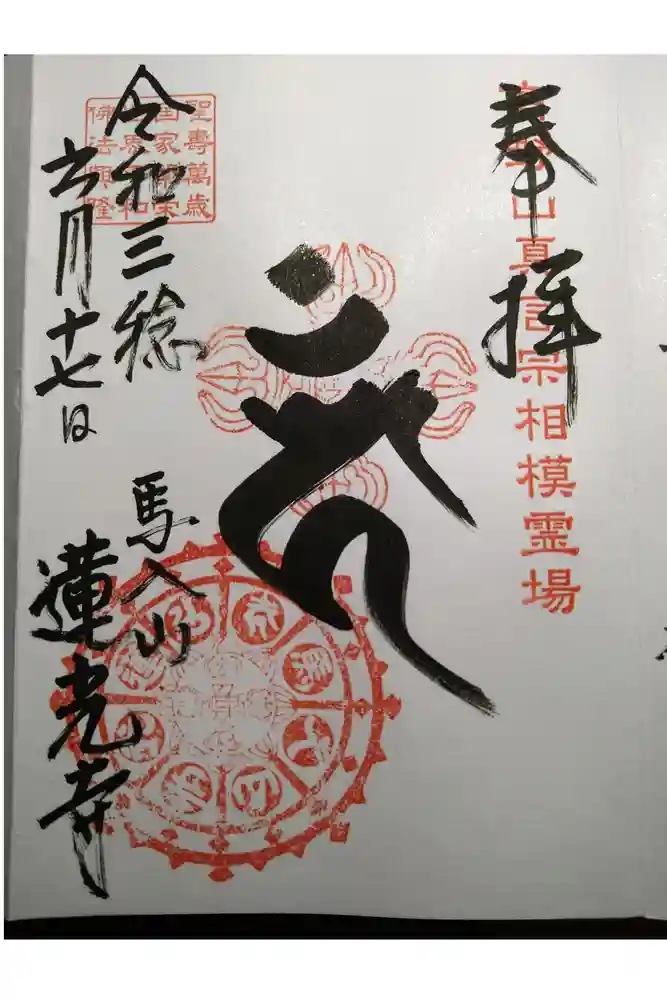 奉拝
高野山真言宗相模霊場
聖壽萬歳
佛法興隆
令和三稔
六月十七日
馬入山
蓮光寺